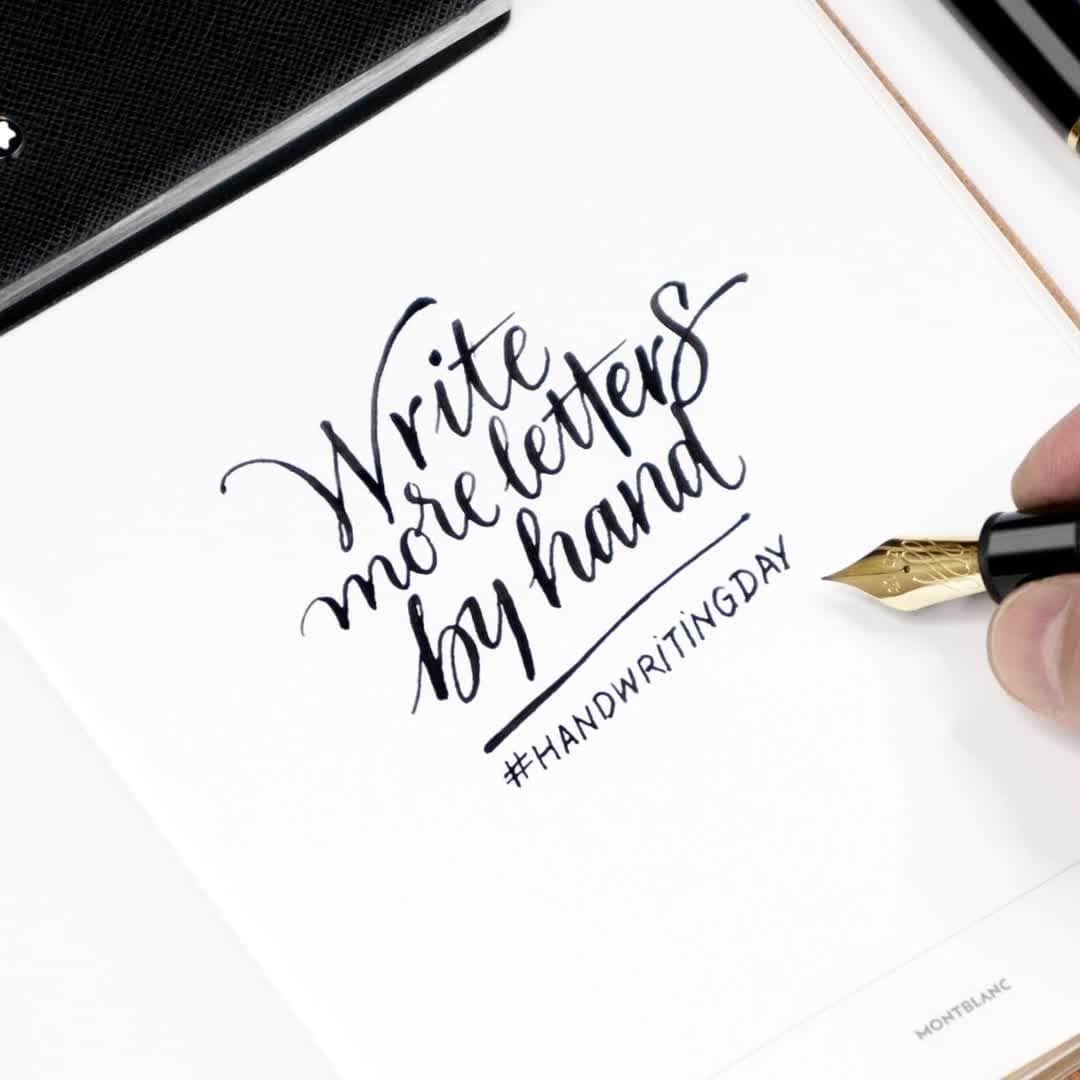 Write
more letters
by hand
#HANDWRiTiNGDAY
MONTBLANC